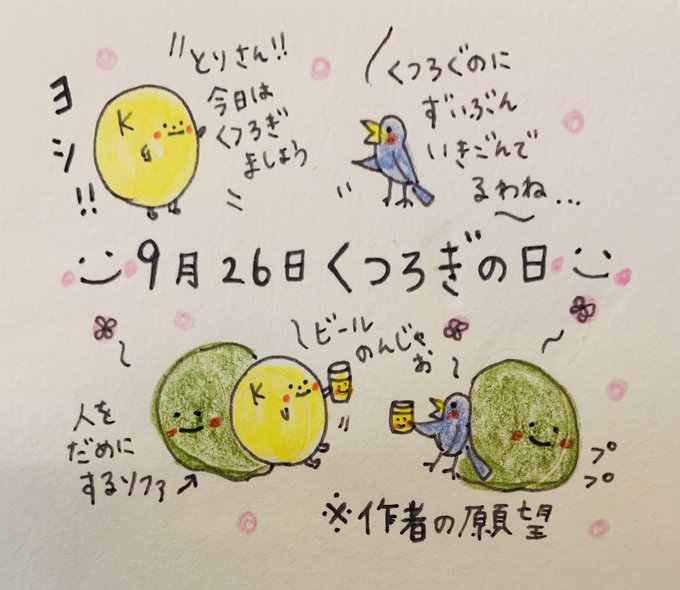 ヨシ!!
K
とりさん!!
今日は
くつろぎ
ましょう
くつろぐのに
ずいぶん
いきごんで
るわね...
9月26日くつろぎの日
ビール
のんじゃ
お
K
人を
だめに
するソファ
プ
プ
※作者の願望